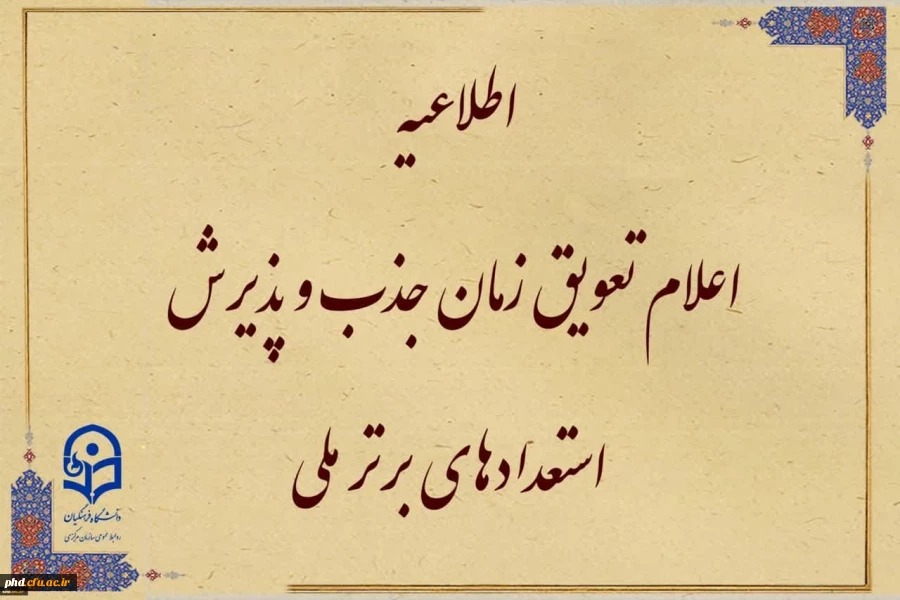 اطلاعیه
اعلام تعویق زمان جذب و پذیرش
استعدادهای برتر ملی
دانشگاه فرهنگیان
روابط عمومی سازمان مرکزی
phd.cfu.ac.ir